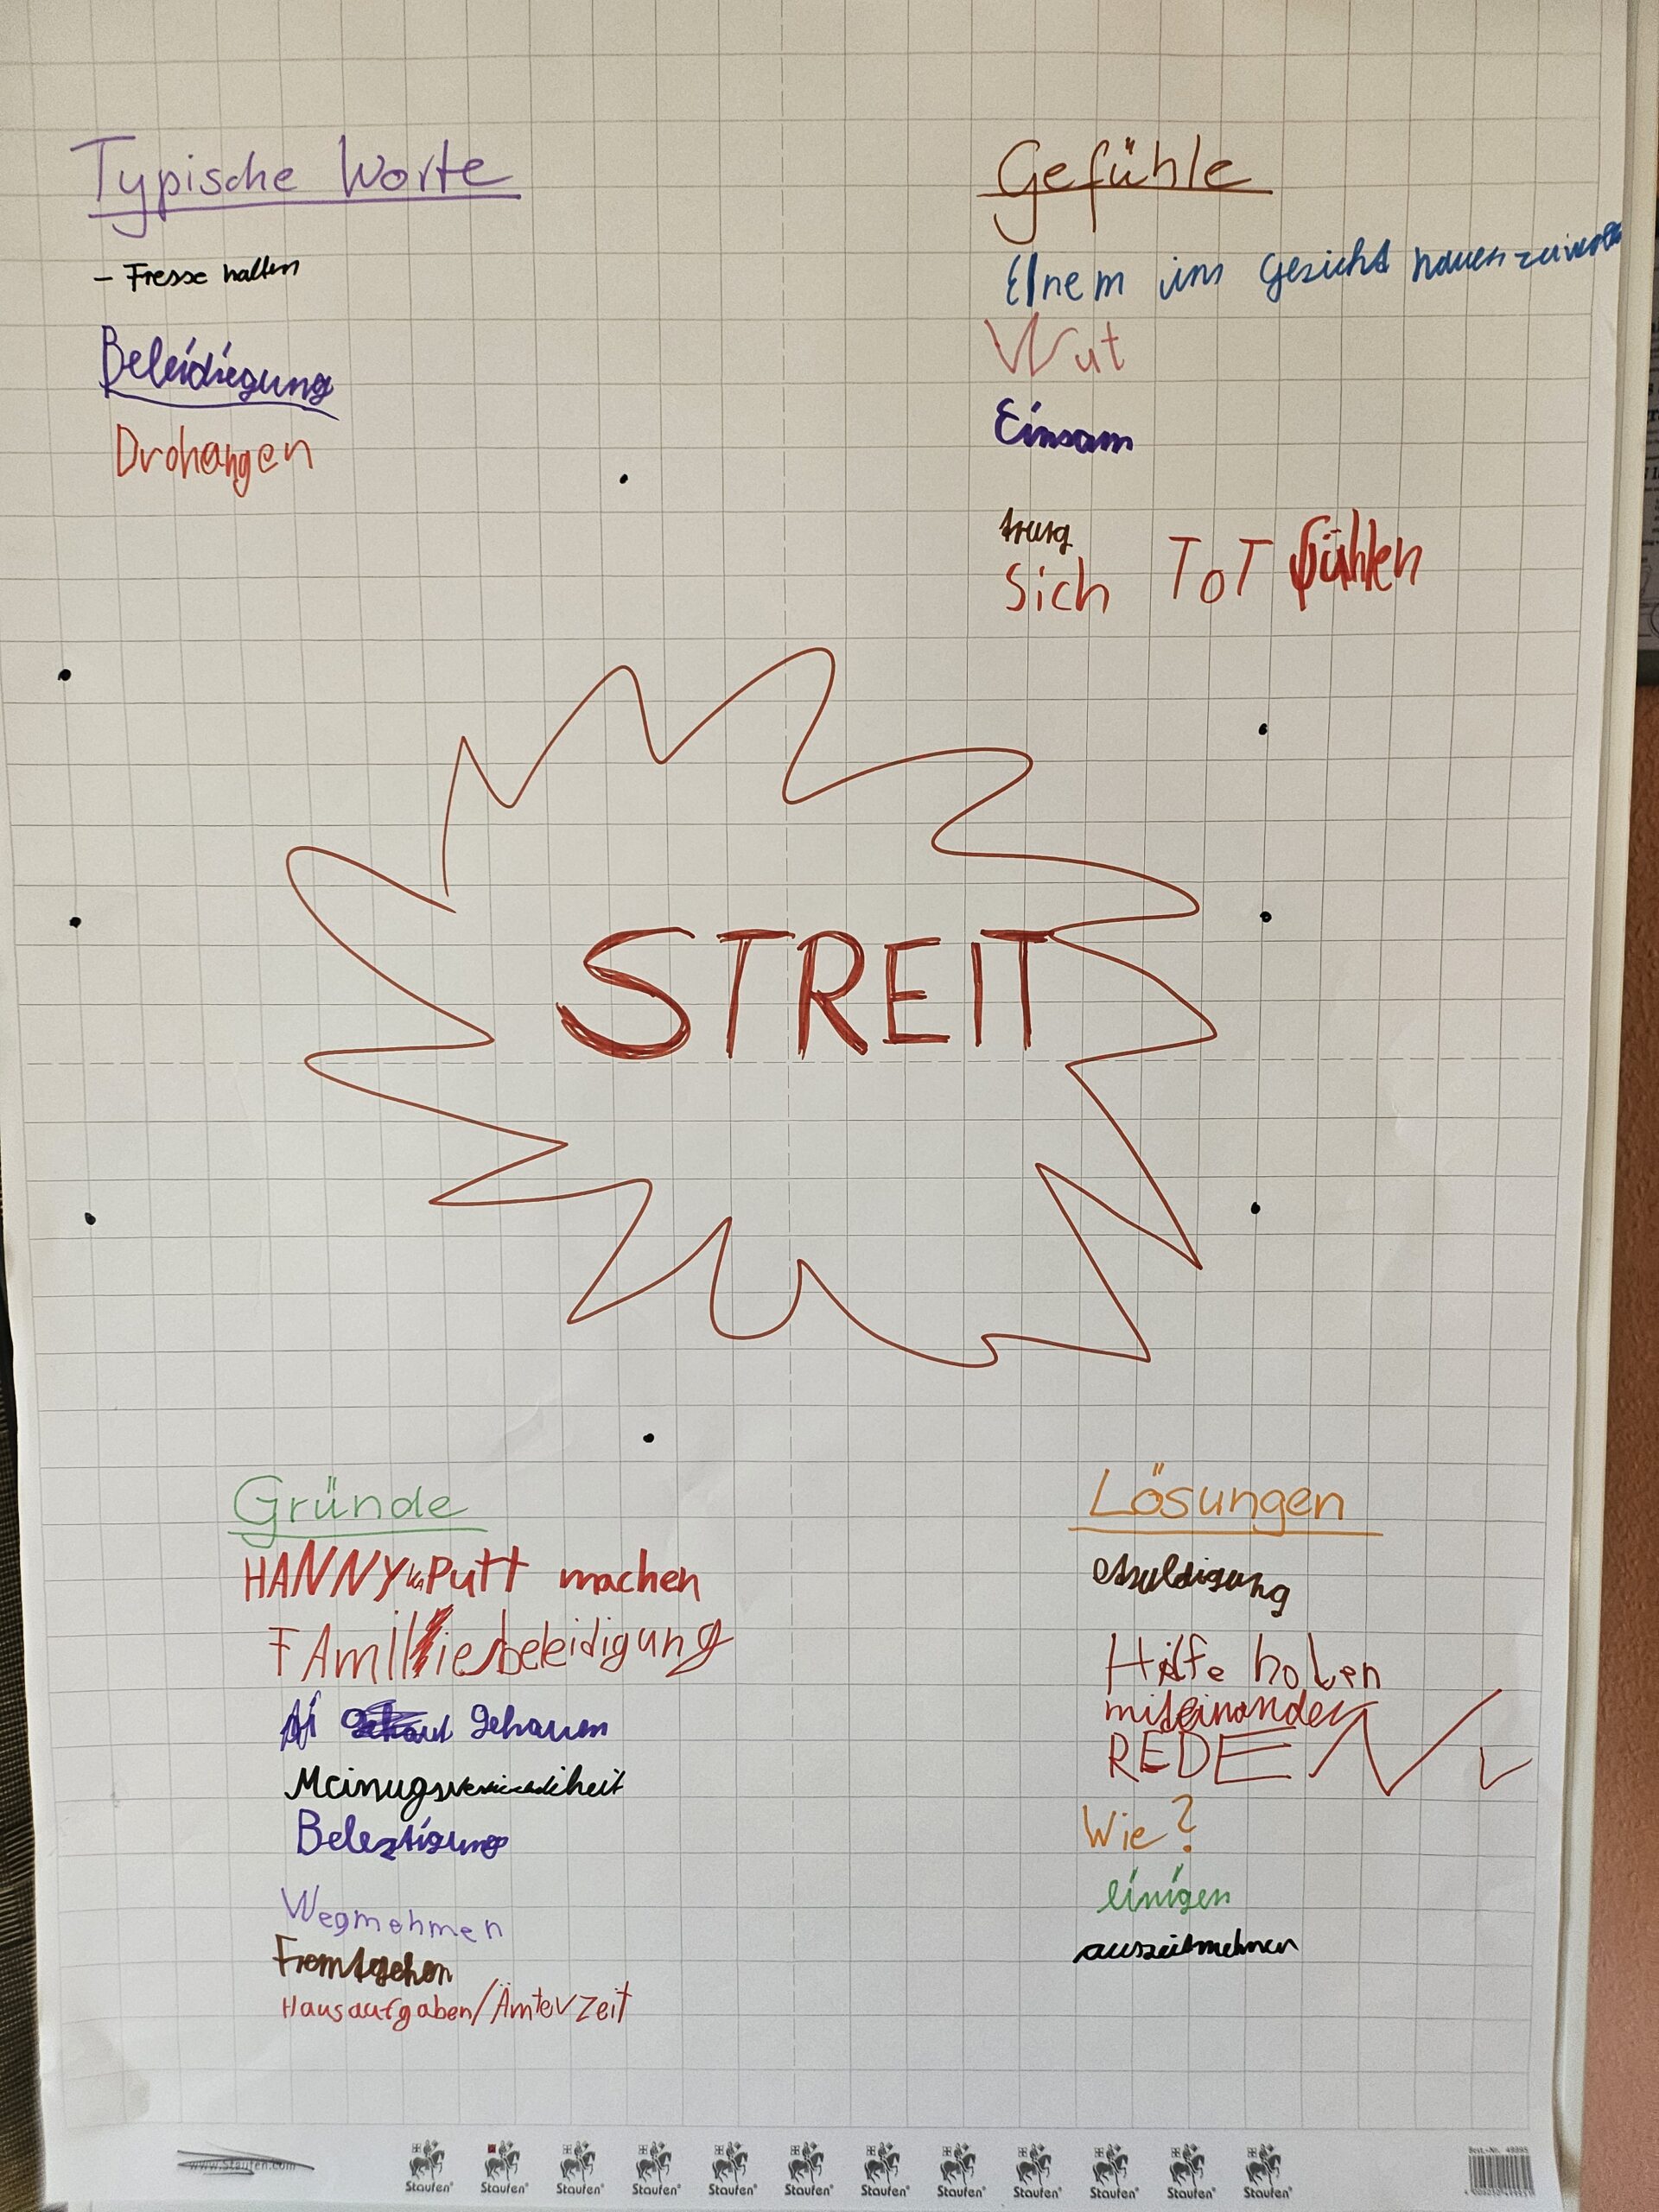 Typische Worte
- Fresse halten
Beleidiegung
Drohangen
Gefühle
Einem ins Gesicht hauen
Wut
Einsam
traurg
Sich ToT fühlen
STREIT
Gründe
HANNY kaPutt machen
FAmilliesbeleidigung
gehauen
Beleztigung
Wegmehmen
Fremtgehen
Hausaufgaben/Ämterzeit
Lösungen
Hilfe holen
miteinander
REDEN
Wie?
einigen
auszeitnehmen
www.Staufen.com
Staufen® Staufen® Staufen® Staufen® Staufen® Staufen® Staufen® Staufen® Staufen® Staufen® Staufen® Staufen®
Best.-Nr. 49995